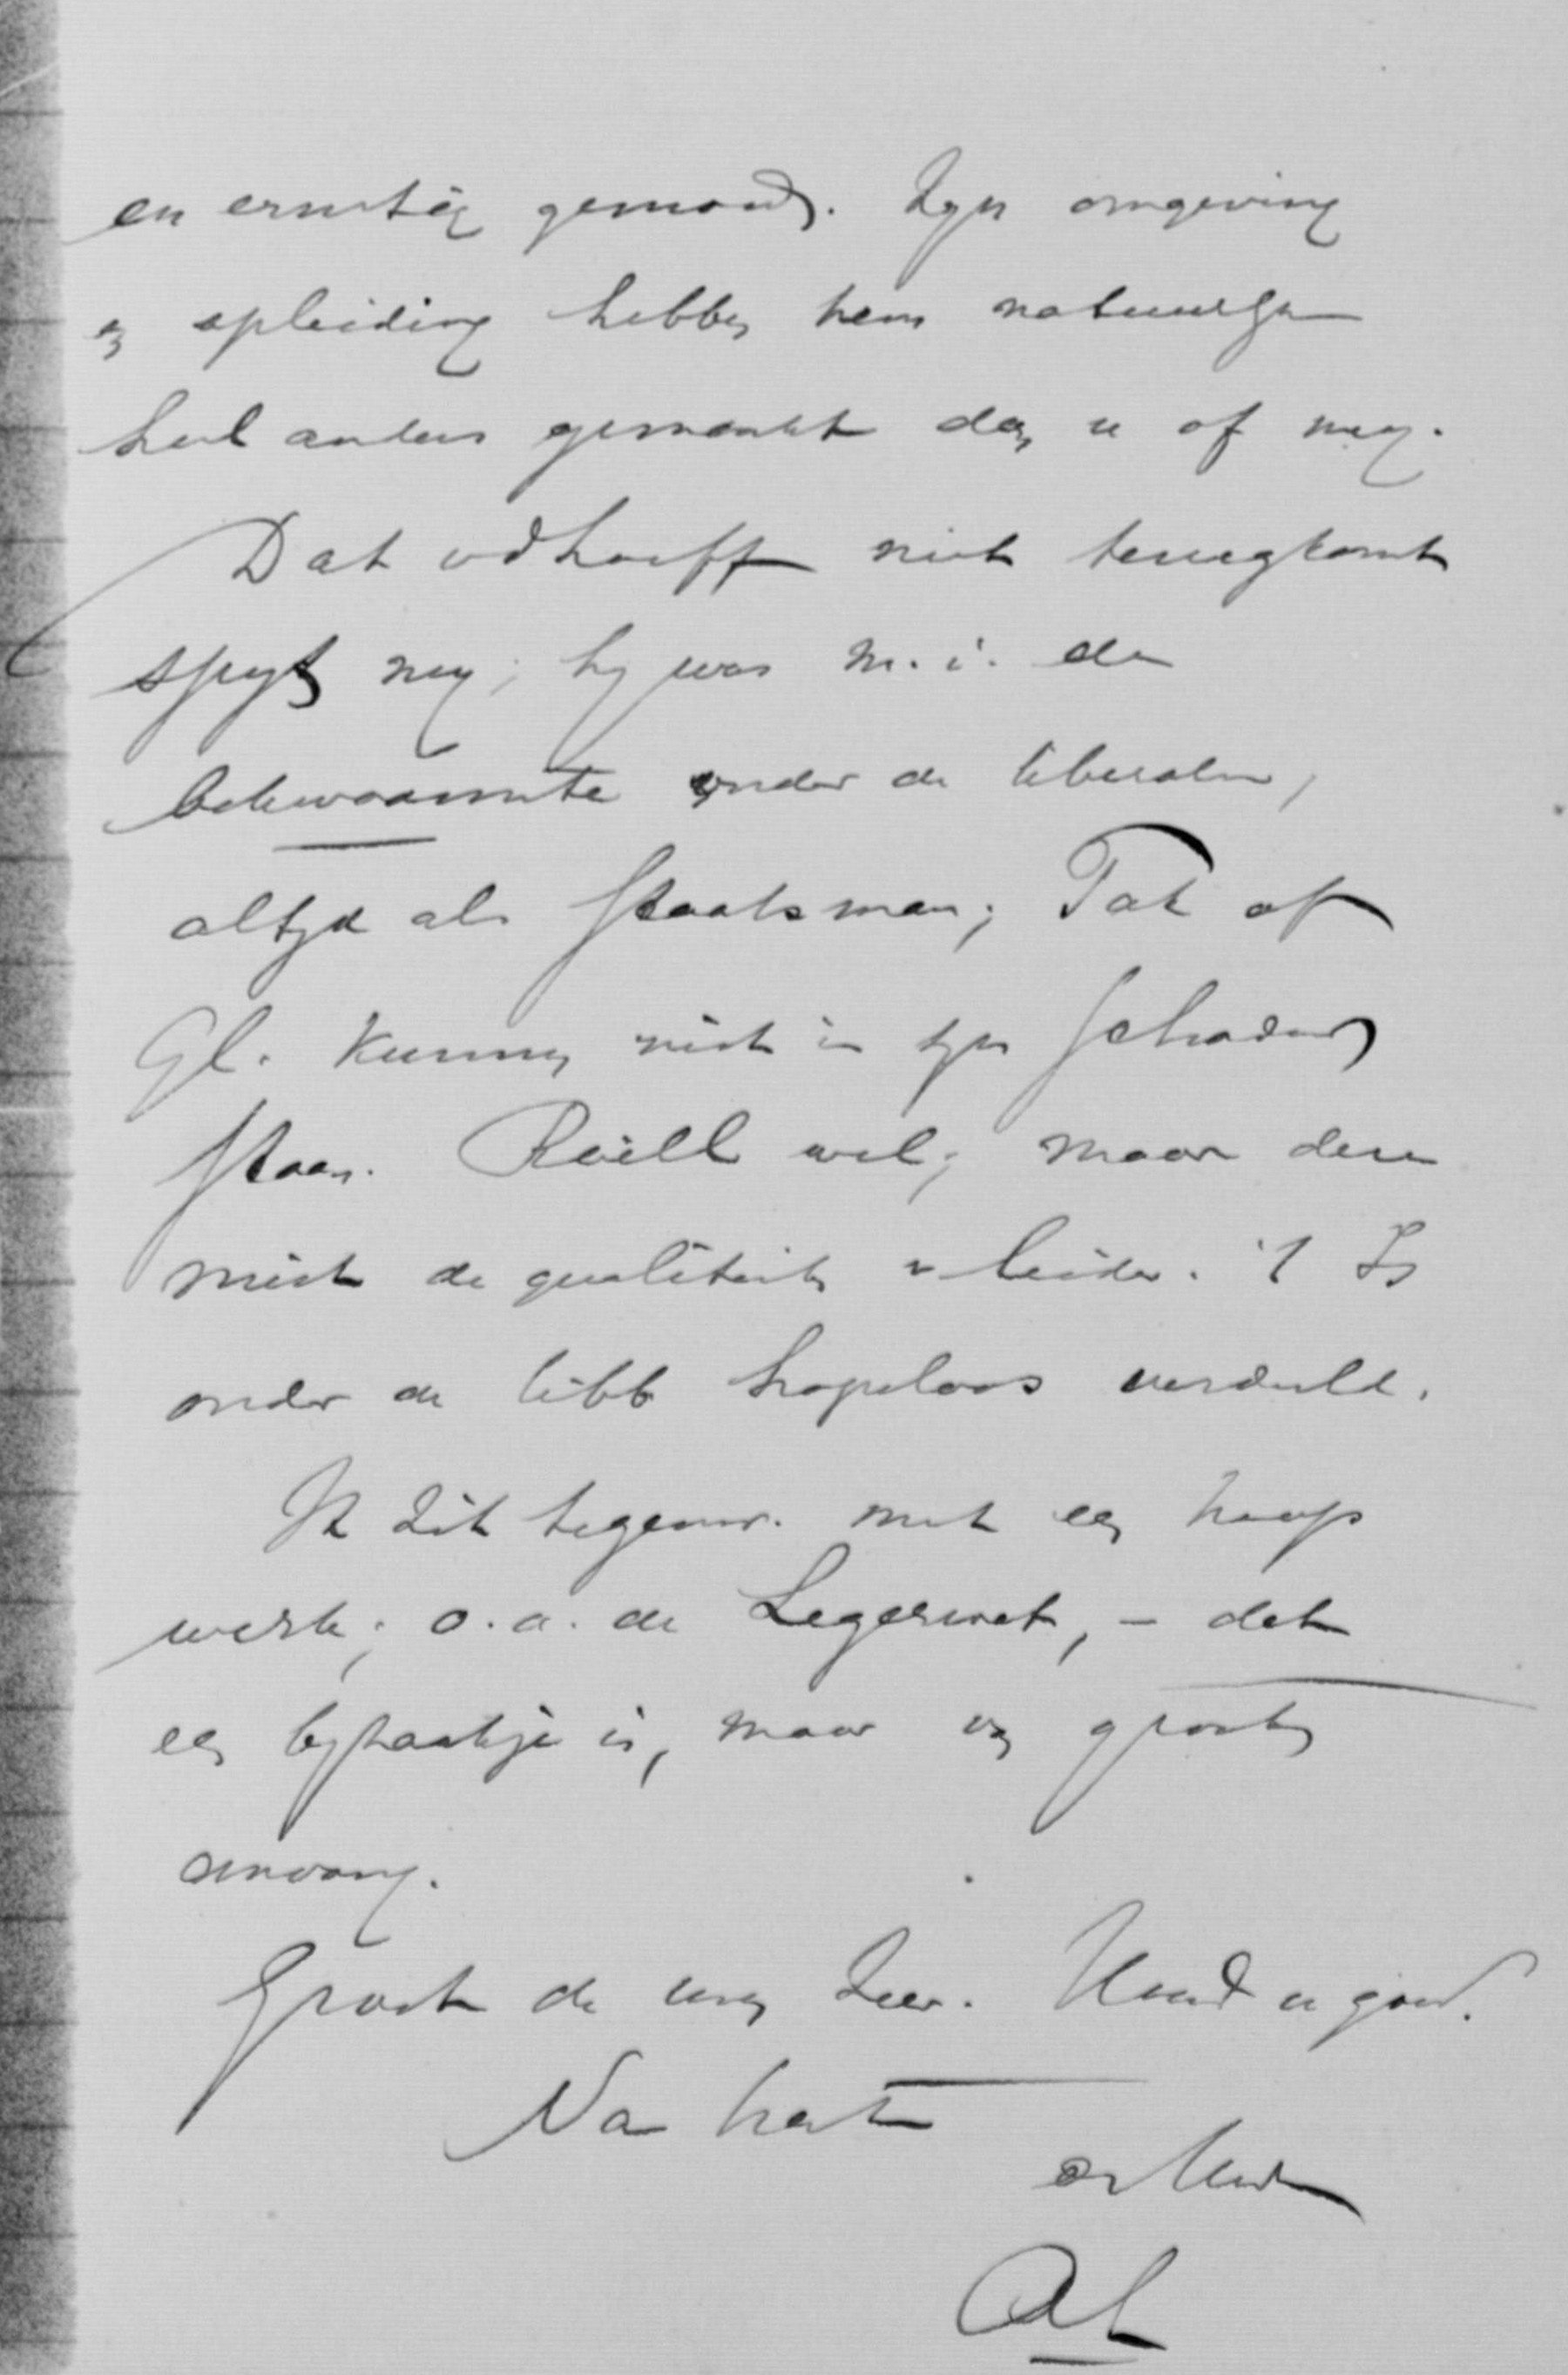 en ernstig gemoed. Zijn omgeving
en opleiding hebben hem natuurlijk
heel anders gemaakt dan u of mij.
Dat vdHoeff niet terugkomt
spijt mij; hij was m.i. de
bekwaamste onder de liberalen,
altijd als staatsman; Tak of
Gl. kunnen niet in zijn schaduw
staan. Roëll wel; maar deze
mist de qualiteit v leider. 't Is
onder de libb hopeloos verdeeld.
Ik zit tegenw. met een hoop
werk; o.a. de Legerwet, – dat
een bijzaakje is, maar van grooten
omvang.
Groet de uwen zeer. Houd u goed.
Na hart
AL